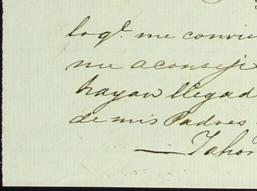 lo q.e me convie
me aconseje
hayan llegad
de mis Padres
— Tahon